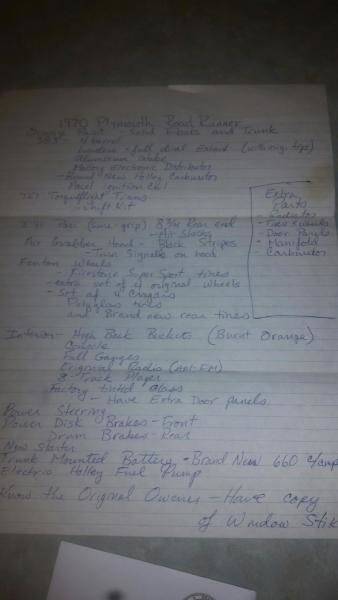 1970 Plymouth Road Runner
Paint - Solid Floors and Trunk
383 - 4 barrel
Headers - full dual Exhaust (with orig. tips)
Aluminum intake
Mallory Electronic Distributor
- Brand New Holley Carburetor
Ignition
727 Torqueflight Trans
- Shift Kit
(sure-grip) 8 3/4 Rear end
- Air Shocks
Air Grabber Hood - Black Stripes
- Turn Signals on hood
Wheels
- Firestone Super Sport tires
- extra set of 4 original wheels
- Set of 4 Cragars
Polyglas tires
and Brand new rear tires
Extra
Parts
- Radiator
- Door Panels
- Manifold
- Carburetor
Interior - High Back Buckets (Burnt Orange)
Console
Full Gauges
Original Radio (AM-FM)
8 Track Player
Factory tinted Glass
- Have Extra Door panels
Power Steering
Power Disk Brakes - Front
Drum Brakes - Rear
New Starter
Trunk Mounted Battery - Brand New 660 c/amp
Electric Holley Fuel Pump
Know the Original Owner - Have copy
of Window Stik